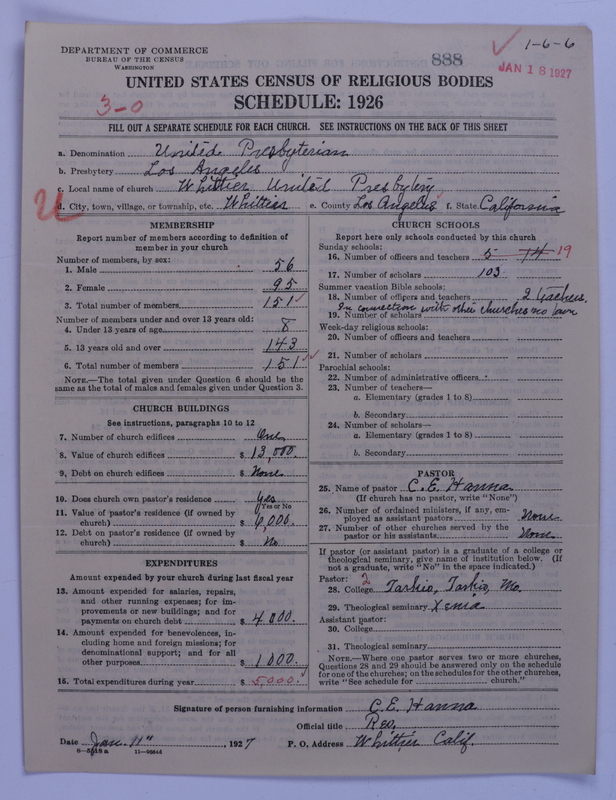 DEPARTMENT OF COMMERCE
BUREAU OF THE CENSUS
WASHINGTON
888
1-6-6
JAN 18 1927
UNITED STATES CENSUS OF RELIGIOUS BODIES
SCHEDULE: 1926
3-0
FILL OUT A SEPARATE SCHEDULE FOR EACH CHURCH. SEE INSTRUCTIONS ON THE BACK OF THIS SHEET
a. Denomination United Presbyterian
b. Presbytery Los Angeles
c. Local name of church Whittier United Presbytery
U
d. City, town, village, or township, etc. Whittier e. County Los Angeles f. State California
MEMBERSHIP
Report number of members according to definition of
member in your church
Number of members, by sex:
1. Male 56
2. Female 95
3. Total number of members 151
Number of members under and over 13 years old:
4. Under 13 years of age 8
5. 13 years old and over 143
6. Total number of members 151
NOTE.—The total given under Question 6 should be
same as the total of males and females given under Question 3.
CHURCH BUILDINGS
See instructions, paragraphs 10 to 12
7. Number of church edifices One
8. Value of church edifices $ 13,000.
9. Debt on church edifices $ None
10. Does church own pastor's residence Yes
(Yes or No)
11. Value of pastor's residence (if owned by
church) $ 6,000.
12. Debt on pastor's residence (if owned by
church) $ No
EXPENDITURES
Amount expended by your church during last fiscal year
13. Amount expended for salaries, repairs,
and other running expenses; for im-
provements or new buildings; and for
payments on church debt $ 4000.
14. Amount expended for benevolences, in-
cluding home and foreign missions; for
denominational support; and for all
other purposes $ 1000.
15. Total expenditures during year $ 5000.
CHURCH SCHOOLS
Report here only schools conducted by this church
Sunday schools:
16. Number of officers and teachers 5 14 19
17. Number of scholars 103
Summer vacation Bible schools:
18. Number of officers and teachers 2 teachers.
In connection with other churches no
19. Number of scholars
Week-day religious schools:
20. Number of officers and teachers
21. Number of scholars
Parochial schools:
22. Number of administrative officers
23. Number of teachers—
a. Elementary (grades 1 to 8)
b. Secondary
24. Number of scholars—
a. Elementary (grades 1 to 8)
b. Secondary
PASTOR
25. Name of pastor C. E. Hanna
(If church has no pastor, write "None")
26. Number of ordained ministers, if any, em-
ployed as assistant pastors None
27. Number of other churches served by the
pastor or his assistants None
If pastor (or assistant pastor) is a graduate of a college or
theological seminary, give name of institution below. (If
not a graduate, write "No" in the space indicated.)
Pastor: 2
28. College Tarkio, Tarkio, Mo.
29. Theological seminary Xenia
Assistant pastor:
30. College
31. Theological seminary
NOTE.—Where one pastor serves two or more churches,
Questions 28 and 29 should be answered only on the schedule
for one of the churches; on the schedules for the other churches,
write "See schedule for church."
Signature of person furnishing information C. E. Hanna
Official title Rev.
Date Jan. 11", 1927 P. O. Address Whittier Calif.